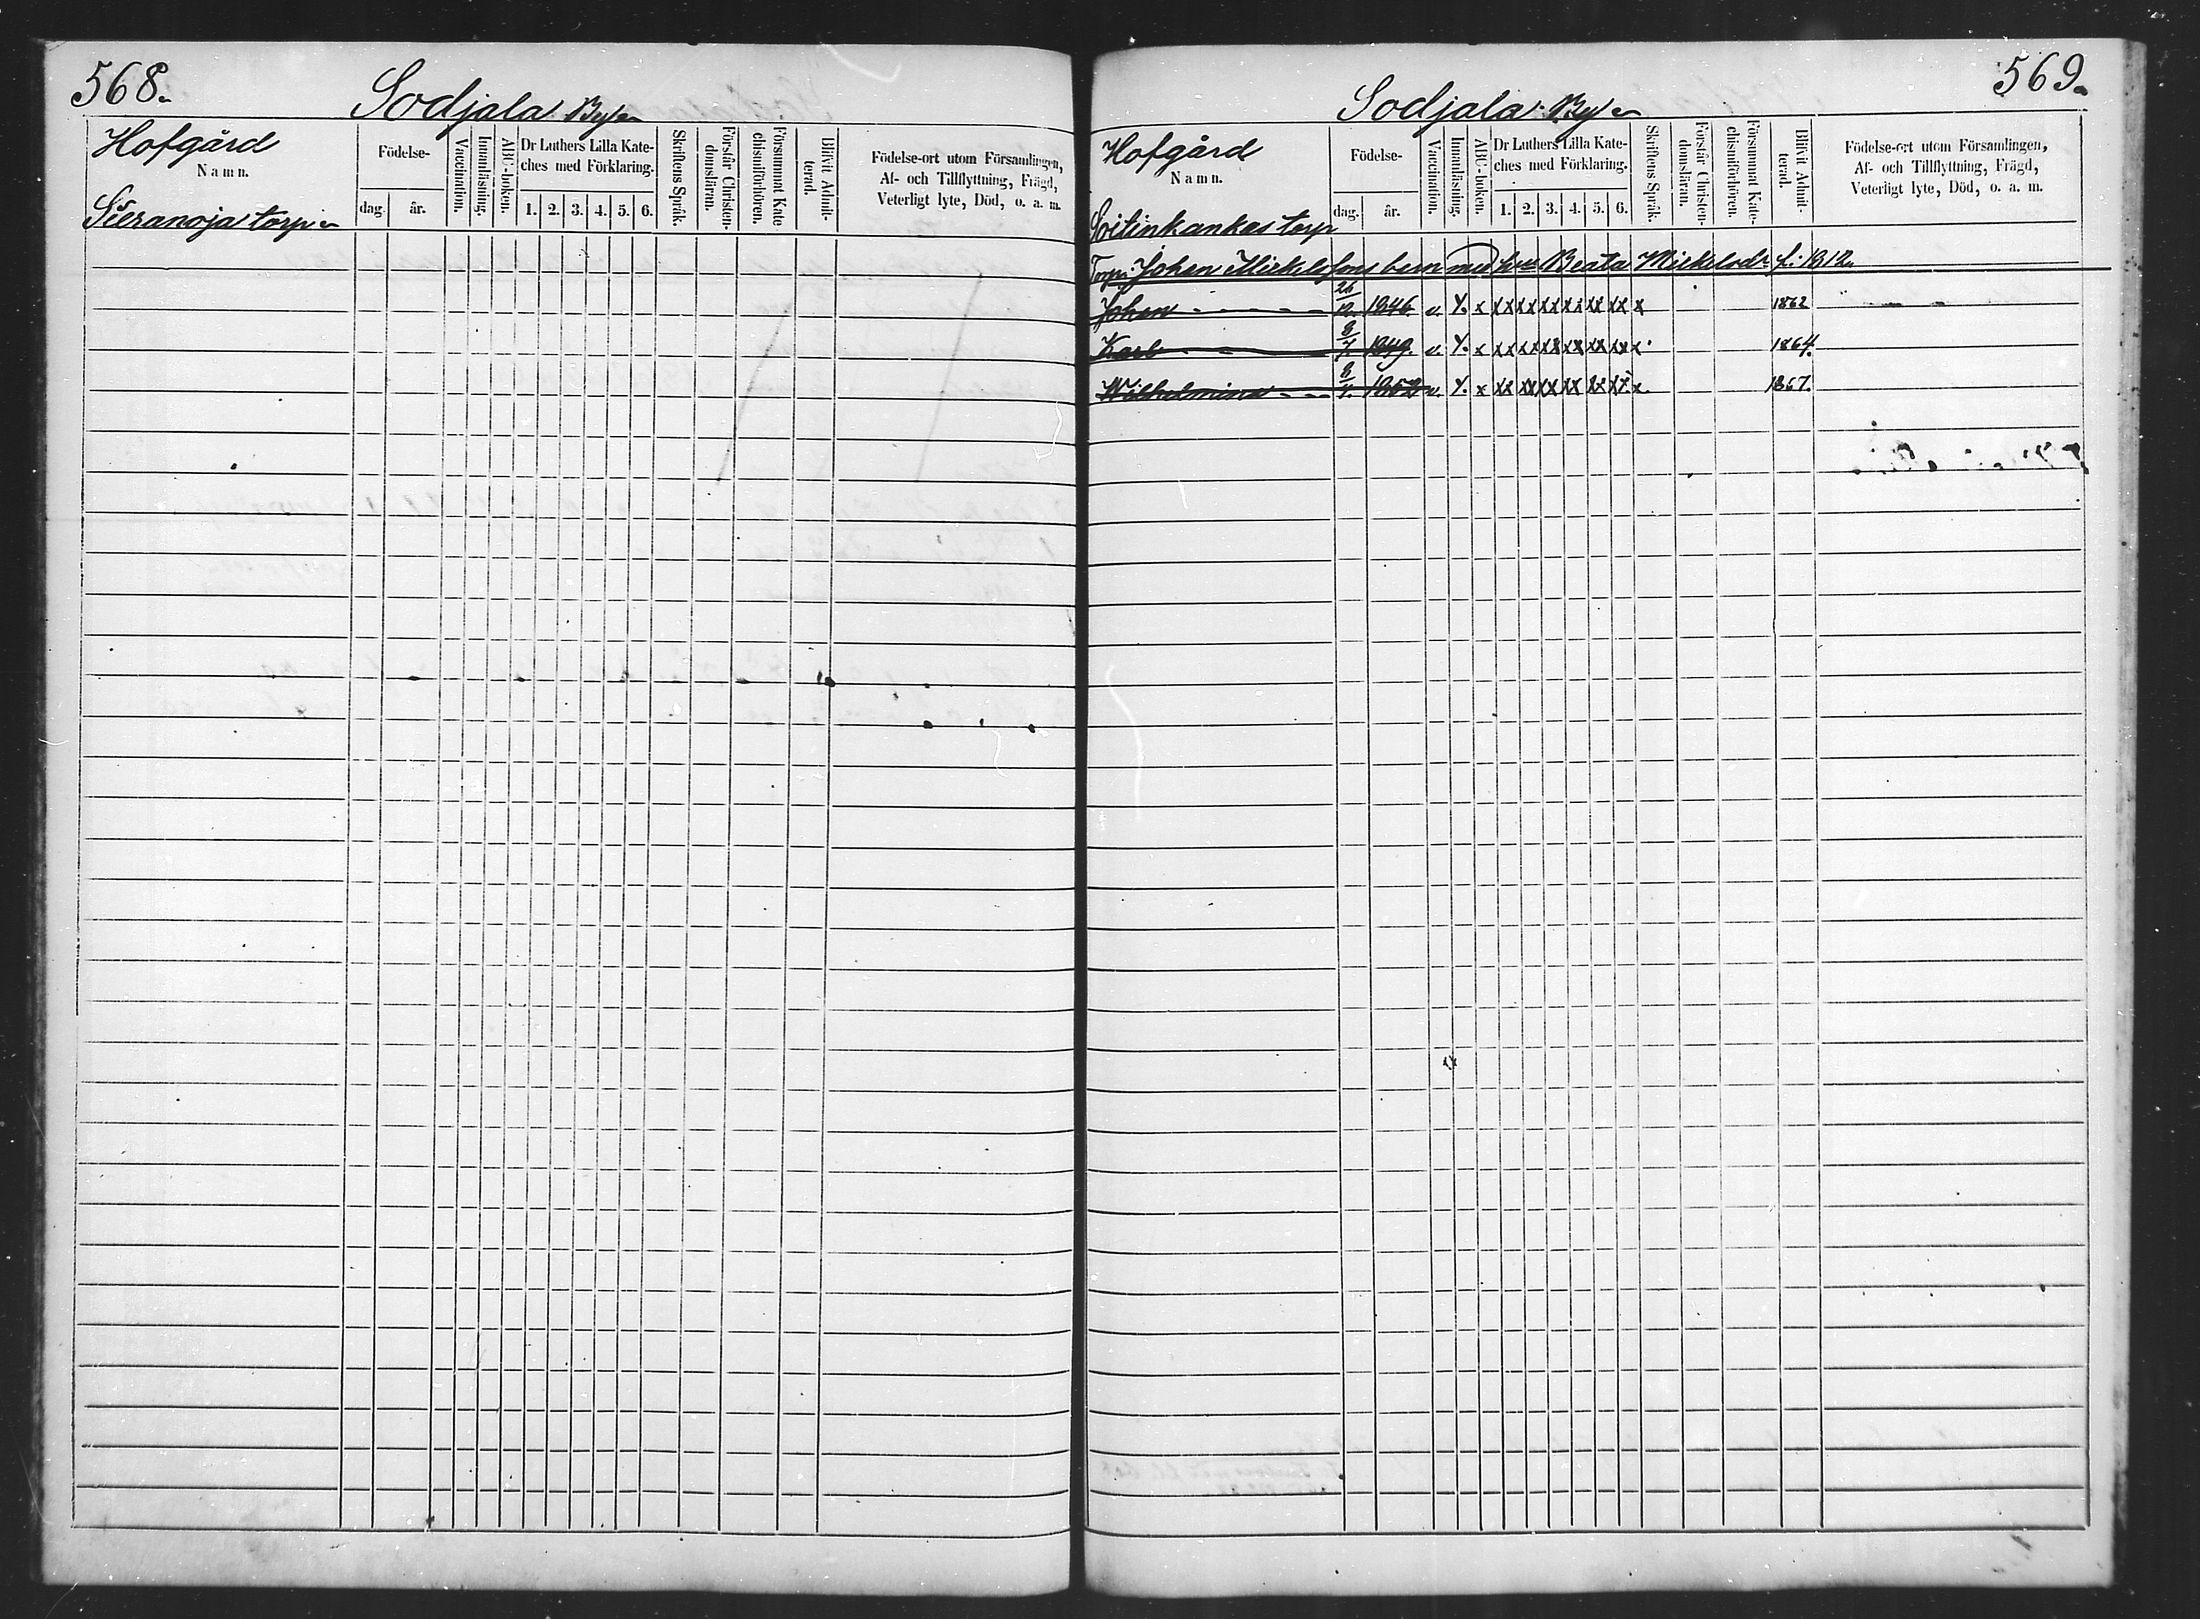 568.
Sodjala By
Hofgård
Namn.
Födelse-
dag. år.
Vaccination.
Innanläsning.
ABC-boken.
Dr Luthers Lilla Kate-
ches med Förklaring.
1. 2. 3. 4. 5. 6.
Skriftens Språk.
Förstår Christen-
domsläran.
Försummat Kate
chismiförhören.
Blifvit Admit-
terad.
Födelse-ort utom Församlingen,
Af- och Tillflyttning, Frägd,
Veterligt lyte, Död, o. a. m.
Sieranoja torp
569.
Sodjala By
Hofgård
Namn.
Födelse-
dag. år.
Vaccination.
Innanläsning.
ABC-boken.
Dr Luthers Lilla Kate-
ches med Förklaring.
1. 2. 3. 4. 5. 6.
Skriftens Språk.
Förstår Christen-
domsläran.
Försummat Kate-
chismiförhören.
Blifvit Admit-
terad.
Födelse-ort utom Församlingen,
Af- och Tillflyttning, Frägd,
Veterligt lyte, Död, o. a. m.
Soitinkankas torp
Torp: Johan Mickelssons barn med hu Beata Mickelsdr f. 1812.
Johan 26/12. 1846. v. x xx xx xx xx xx xx x 1862
Karl 8/7. 1849. v. x xx xx xx xx xx xx x 1864.
Wilhelmina 8/4. 1852 v. x xx xx xx xx xx xx x 1867.